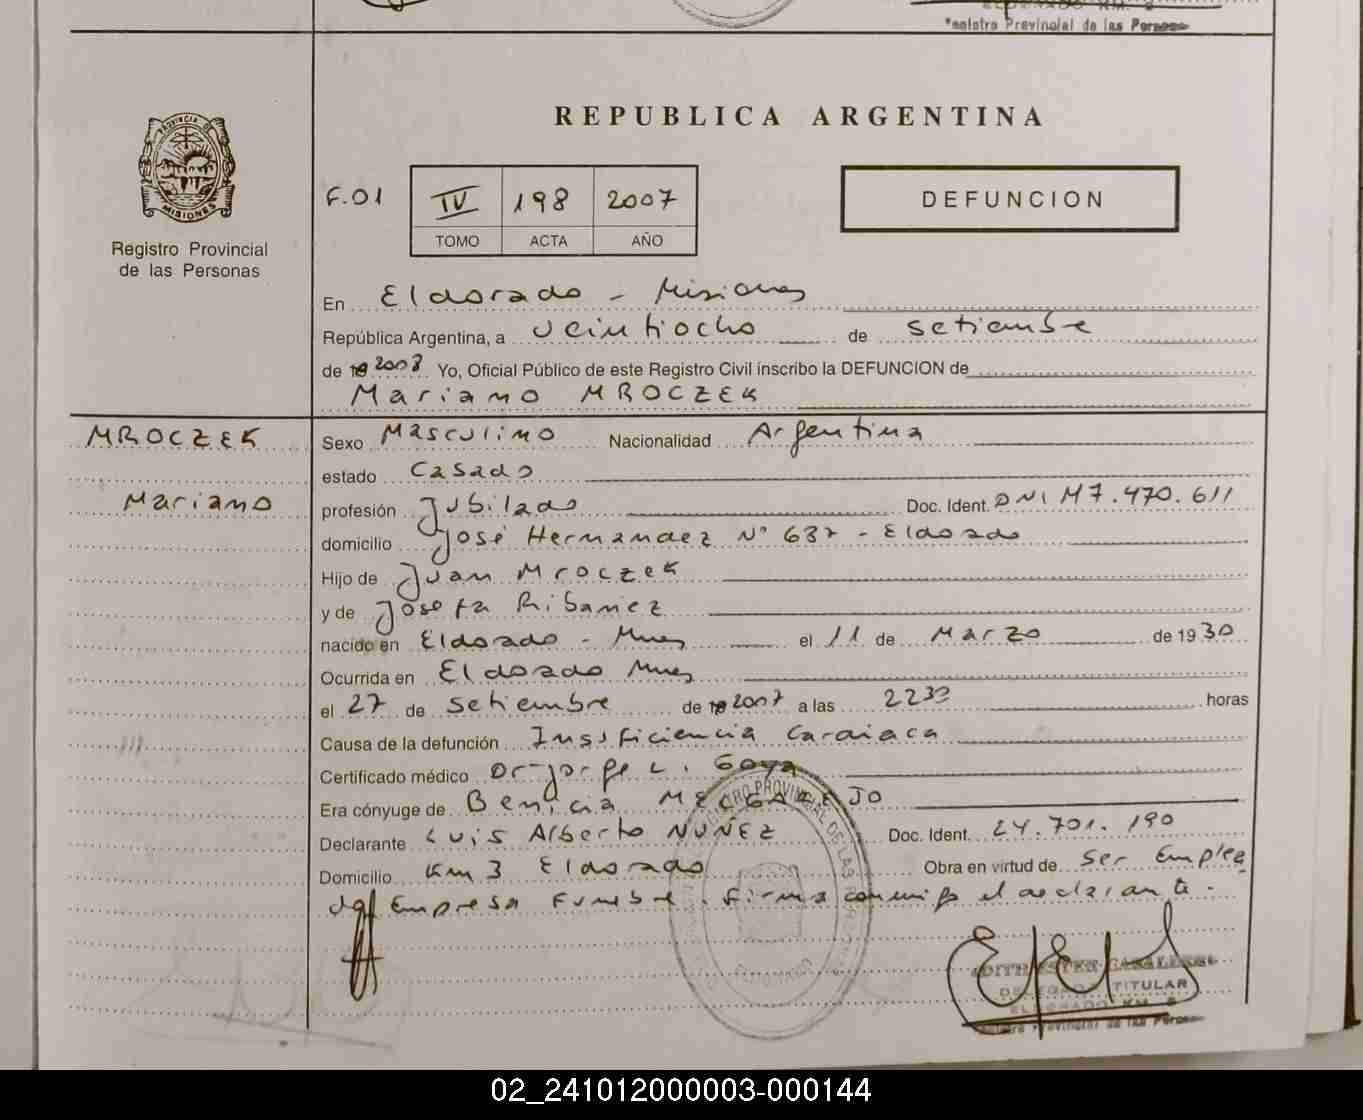 Registro Provincial de las Personas
REPUBLICA ARGENTINA
PROVINCIA D
MISIONES
Registro Provincial
de las Personas
F.01
IV 198 2007
TOMO ACTA AÑO
DEFUNCION
En Eldorado - Misiones
República Argentina, a veintiocho de setiembre
de 2007 Yo, Oficial Público de este Registro Civil inscribo la DEFUNCION de
Mariano MROCZEK
MROCZEK
Mariano
Sexo Masculino Nacionalidad Argentina
estado Casado
profesión Jubilado Doc. Ident. DNI M7.470.611
domicilio José Hernandez N° 637 - Eldorado
Hijo de Juan Mroczek
y de Josefa Ribanez
nacido en Eldorado - Mnes el 11 de Marzo de 1930
Ocurrida en Eldorado Mnes
el 27 de setiembre de 2007 a las 2230 horas
Causa de la defunción Insuficiencia Cardiaca
Certificado médico Dr. Jorge L. Goya
Era cónyuge de Benicia MELGAREJO
Declarante Luis Alberto NUÑEZ Doc. Ident. 24.701.190
Domicilio Km 3 Eldorado Obra en virtud de ser emplea
do/ Empresa Funebre. Firma conmigo el declarante.
REGISTRO PROVINCIAL DE LAS PERSONAS
ELDORADO
EDITH ESTER
DELEGADA TITULAR
ELDORADO KM. 9
Registro Provincial de las Personas
02_241012000003-000144